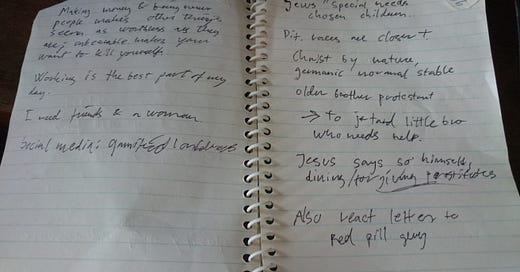 Making money & being around
people makes other things
seem as worthless as they
are; makes you
want to kill yourself.
Working is the best part of my
day.
I need friends & a woman.
Social media: gamified loneliness
Jews "special needs
chosen children.
Dif. races are closer t
Christ by nature,
germanic normal stable
older brother protestant
→ to little bro
who needs help.
Jesus says so himself,
dining/forgiving prostitutes
Also react letter to
red pill guy